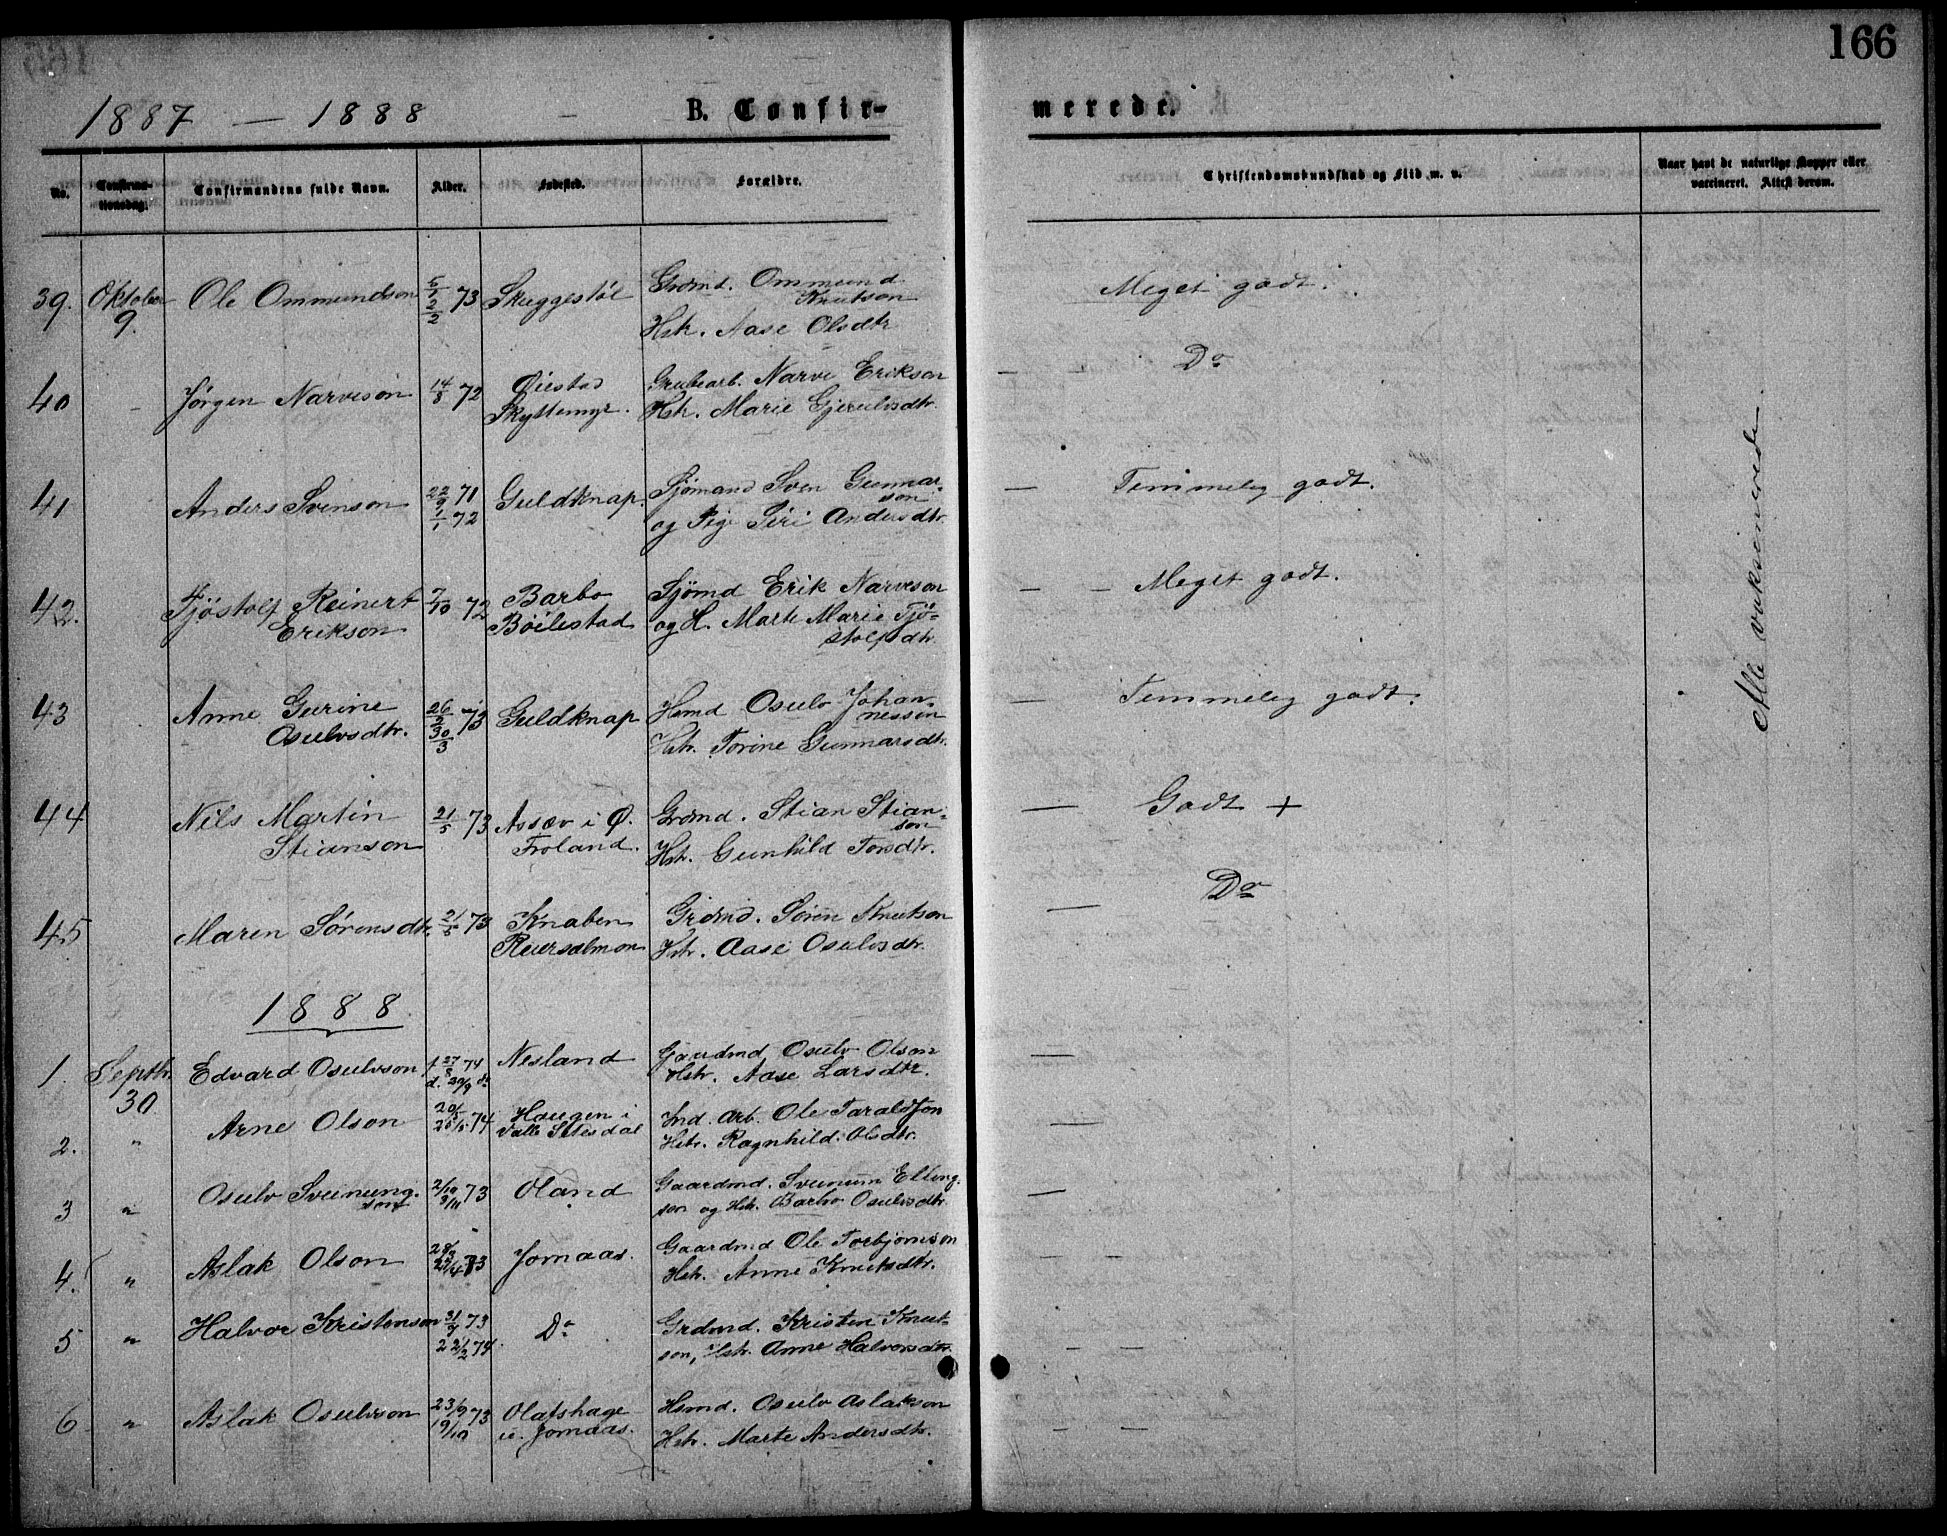 166
1887 — 1888 B. Confir- merede.
No. Confirma-tionsdag. Confirmandens fulde Navn. Alder. Fødested. Forældre. Christendomskundskab og Flid m. v. Naar havt de naturlige Kopper eller vaccineret. Attest derom.
39. Oktober 9. Ole Ommundson 73 Skuggestöl Grdmd. Ommund Knutson Meget godt.
Hstr. Aase Olsdtr
40 - Jørgen Narveson 14/8 72 Øiestad Skyttemyr. Grubearb. Narve Erikson — - Do
Hstr. Marie Gjerulvsdtr.
41 Anders Svenson 22/9 71 1/1 72 Guldknap. Sjömand Sven Gunnarson — Temmelig godt.
og Pige Siri Andersdtr.
42. Tjöstolf Reinert Erikson 7/10 72 Barbo Böilestad Sjömd Erik Narveson — - Meget godt.
og H. Marte Marie Tjöstolfsdtr.
43 Anne Gurine Osulvsdtr. 26/2 73 30/3 Guldknap Hsmd Osulv Johannessen — Temmelig godt.
Hstr. Torine Gunnarsdtr.
44 Nils Martin Stianson 21/5 73 Assæv i Ø. Froland. Grdmd. Stian Stianson — Godt +
Hstr. Gunhild Torsdtr.
45 Maren Sørensdtr. 21/5 73 Knaben Reiersølmon Grdmd. Sören Knutson — Do
Hstr. Aase Osulvsdtr.
Alle vaksinerede.
1888
1. Septbr. 30 Edvard Osulvson f. 27/8 74 d. 20/9 do Nesland Gaardmd Osulv Olson —
Hstr. Aase Larsdtr.
2. " Arne Olson 20/5 25/5 74 Haugen i Valle Sætesdal Ind. Arb. Ole Taraldson —
Hstr. Ragnhild Olsdtr.
3 " Osulv Sveinungson 2/10 9/11 73 Oland Gaardmd. Sveinum Ellingson og Hstr. Barbro Osulvsdtr. —
4. " Aslak Olson 73 Jomaas. Gaardmd Ole Torbjørnson — -
Hstr. Anne Knutsdtr.
5 " Halvor Kristenson 31/7 73 22/2 74 Do Grdmd. Kristen Knutson, Hstr. Anne Halvorsdtr. - —
6 " Aslak Osulvson 23/9 73 19/10 Olafshage u. Jomaas. Hsmd. Osulv Aslakson - —
Hstr. Marte Andersdtr.